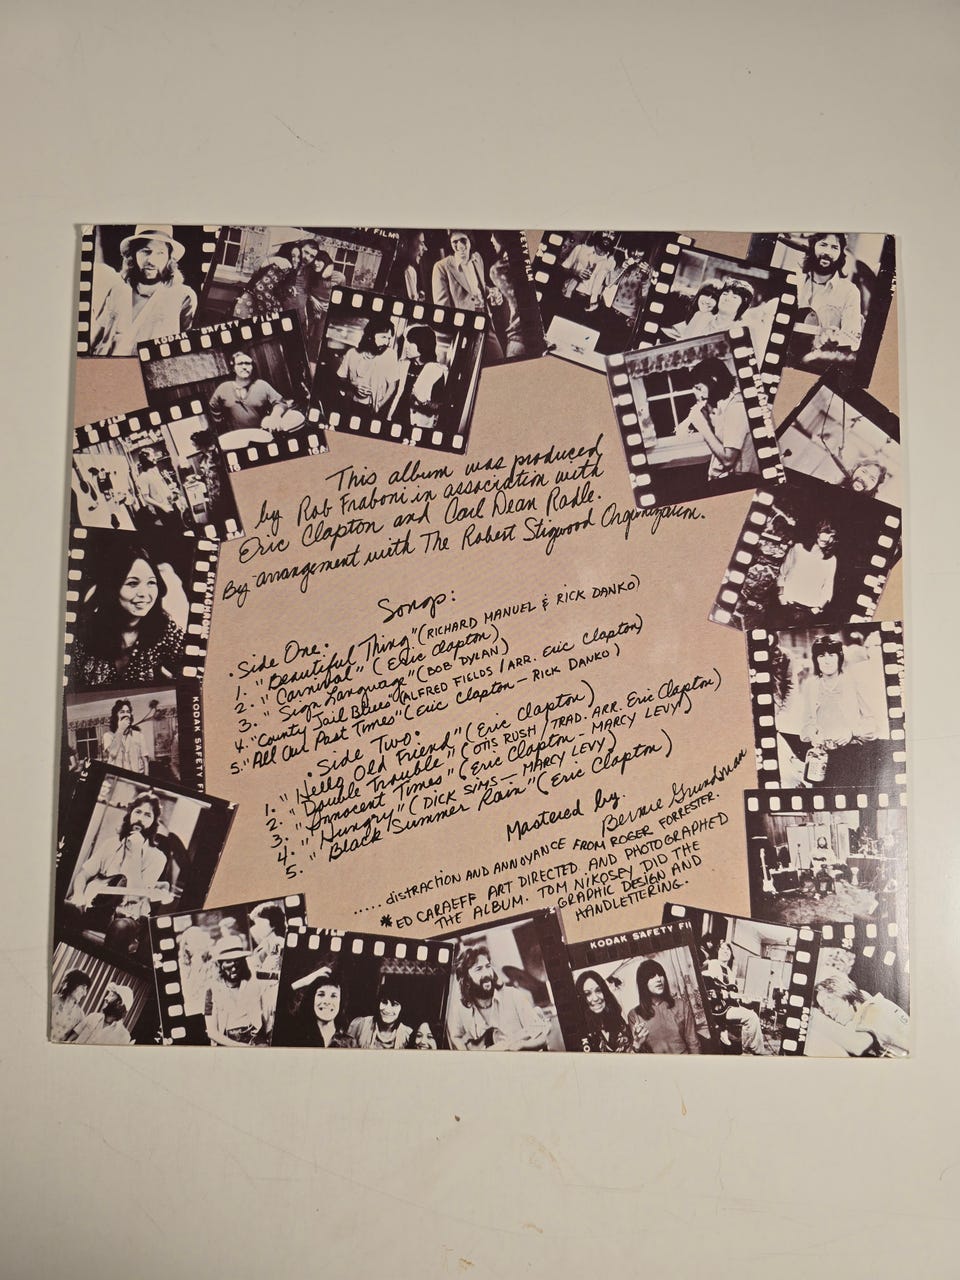 KODAK SAFETY FILM
FETY FILM
This album was produced
by Rob Fraboni in association with
Eric Clapton and Carl Dean Radle.
By arrangement with The Robert Stigwood Organization.
Songs:
• Side One:
1. "Beautiful Thing" (RICHARD MANUEL & RICK DANKO)
2. "Carnival" (Eric Clapton)
3. "Sign Language" (BOB DYLAN)
4. "County Jail Blues" (ALFRED FIELDS / ARR. Eric Clapton)
5. "All Our Past Times" (Eric Clapton – RICK DANKO)
• Side Two:
1. "Hello Old Friend" (Eric Clapton)
2. "Double Trouble" (OTIS RUSH / TRAD. ARR. Eric Clapton)
3. "Innocent Times" (Eric Clapton - MARCY LEVY)
4. "Hungry" (DICK SIMS — MARCY LEVY)
5. "Black Summer Rain" (Eric Clapton)
Mastered by.
Bernie Grundman
..... distRACTION AND ANNOYANCE FROM ROGER FORRESTER.
*ED CARAEFF ART DIRECTED AND PHOTOGRAPHED
THE ALBUM. TOM NIKOSEY DID THE
GRAPHIC DESIGN AND
HANDLETTERING.
KODAK SAFETY F
KODAK SAFETY FI